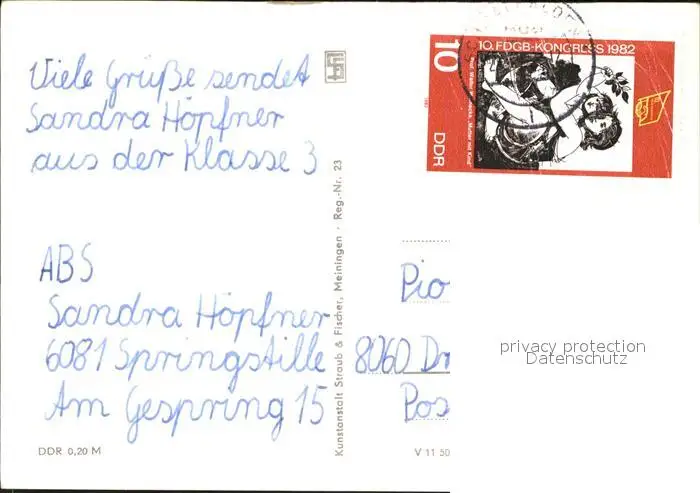 Viele Grüße sendet
Sandra Höpfner
aus der Klasse 3
ABS
Sandra Höpfner
6081 Springstille
Am Gespring 15
DDR 0,20 M
Kunstanstalt Straub & Fischer, Meiningen · Reg.-Nr. 23
10
10. FDGB-KONGRESS 1982
DDR
Pio
8060 Dr
Pos
V 11 50
privacy protection
Datenschutz